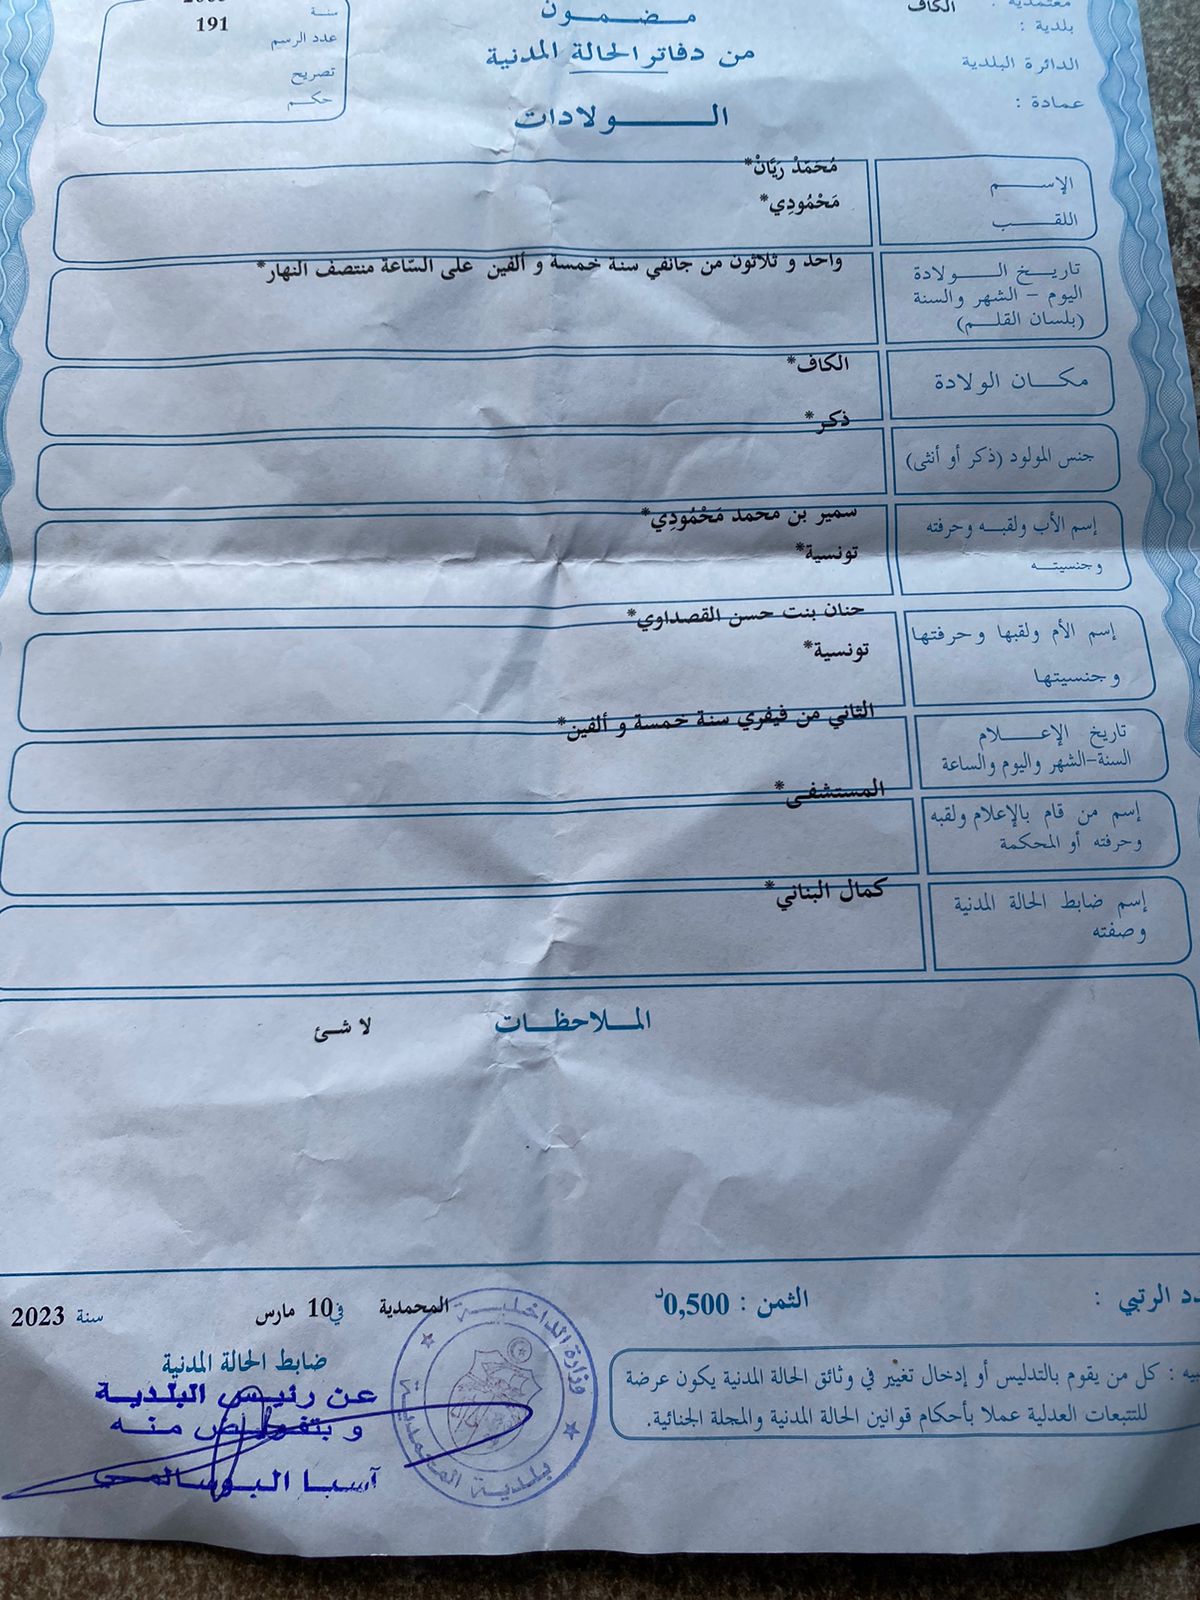 معتمدية : الكاف
بلدية :
الدائرة البلدية
عمادة :
مضمون
من دفاتر الحالة المدنية
الولادات
سنة
عدد الرسم 191
تصريح
حكم
الإسم مُحَمَّدْ رَيَّانْ*
اللقب مَحْمُودِي*
تاريخ الولادة
اليوم - الشهر والسنة
(بلسان القلم)
واحد و ثلاثون من جانفي سنة خمسة و ألفين على السّاعة منتصف النهار*
مكان الولادة الكاف*
جنس المولود (ذكر أو أنثى) ذكر*
إسم الأب ولقبه وحرفته سمير بن محمد مَحْمُودِي*
وجنسيته تونسية*
إسم الأم ولقبها وحرفتها حنان بنت حسن القصداوي*
وجنسيتها تونسية*
تاريخ الإعلام الثاني من فيفري سنة خمسة و ألفين*
السنة-الشهر واليوم والساعة
إسم من قام بالإعلام ولقبه المستشفى*
وحرفته أو المحكمة
إسم ضابط الحالة المدنية كمال البناني*
وصفته
الملاحظات لا شئ
الرتبي :
الثمن : 0,500د
المحمدية في 10 مارس سنة 2023
ضابط الحالة المدنية
عن رئيس البلدية
و بتفويض منه
آسيا البوسالمي
وزارة الداخلية
بلدية المحمدية
: كل من يقوم بالتدليس أو إدخال تغيير في وثائق الحالة المدنية يكون عرضة
للتتبعات العدلية عملا بأحكام قوانين الحالة المدنية والمجلة الجنائية.